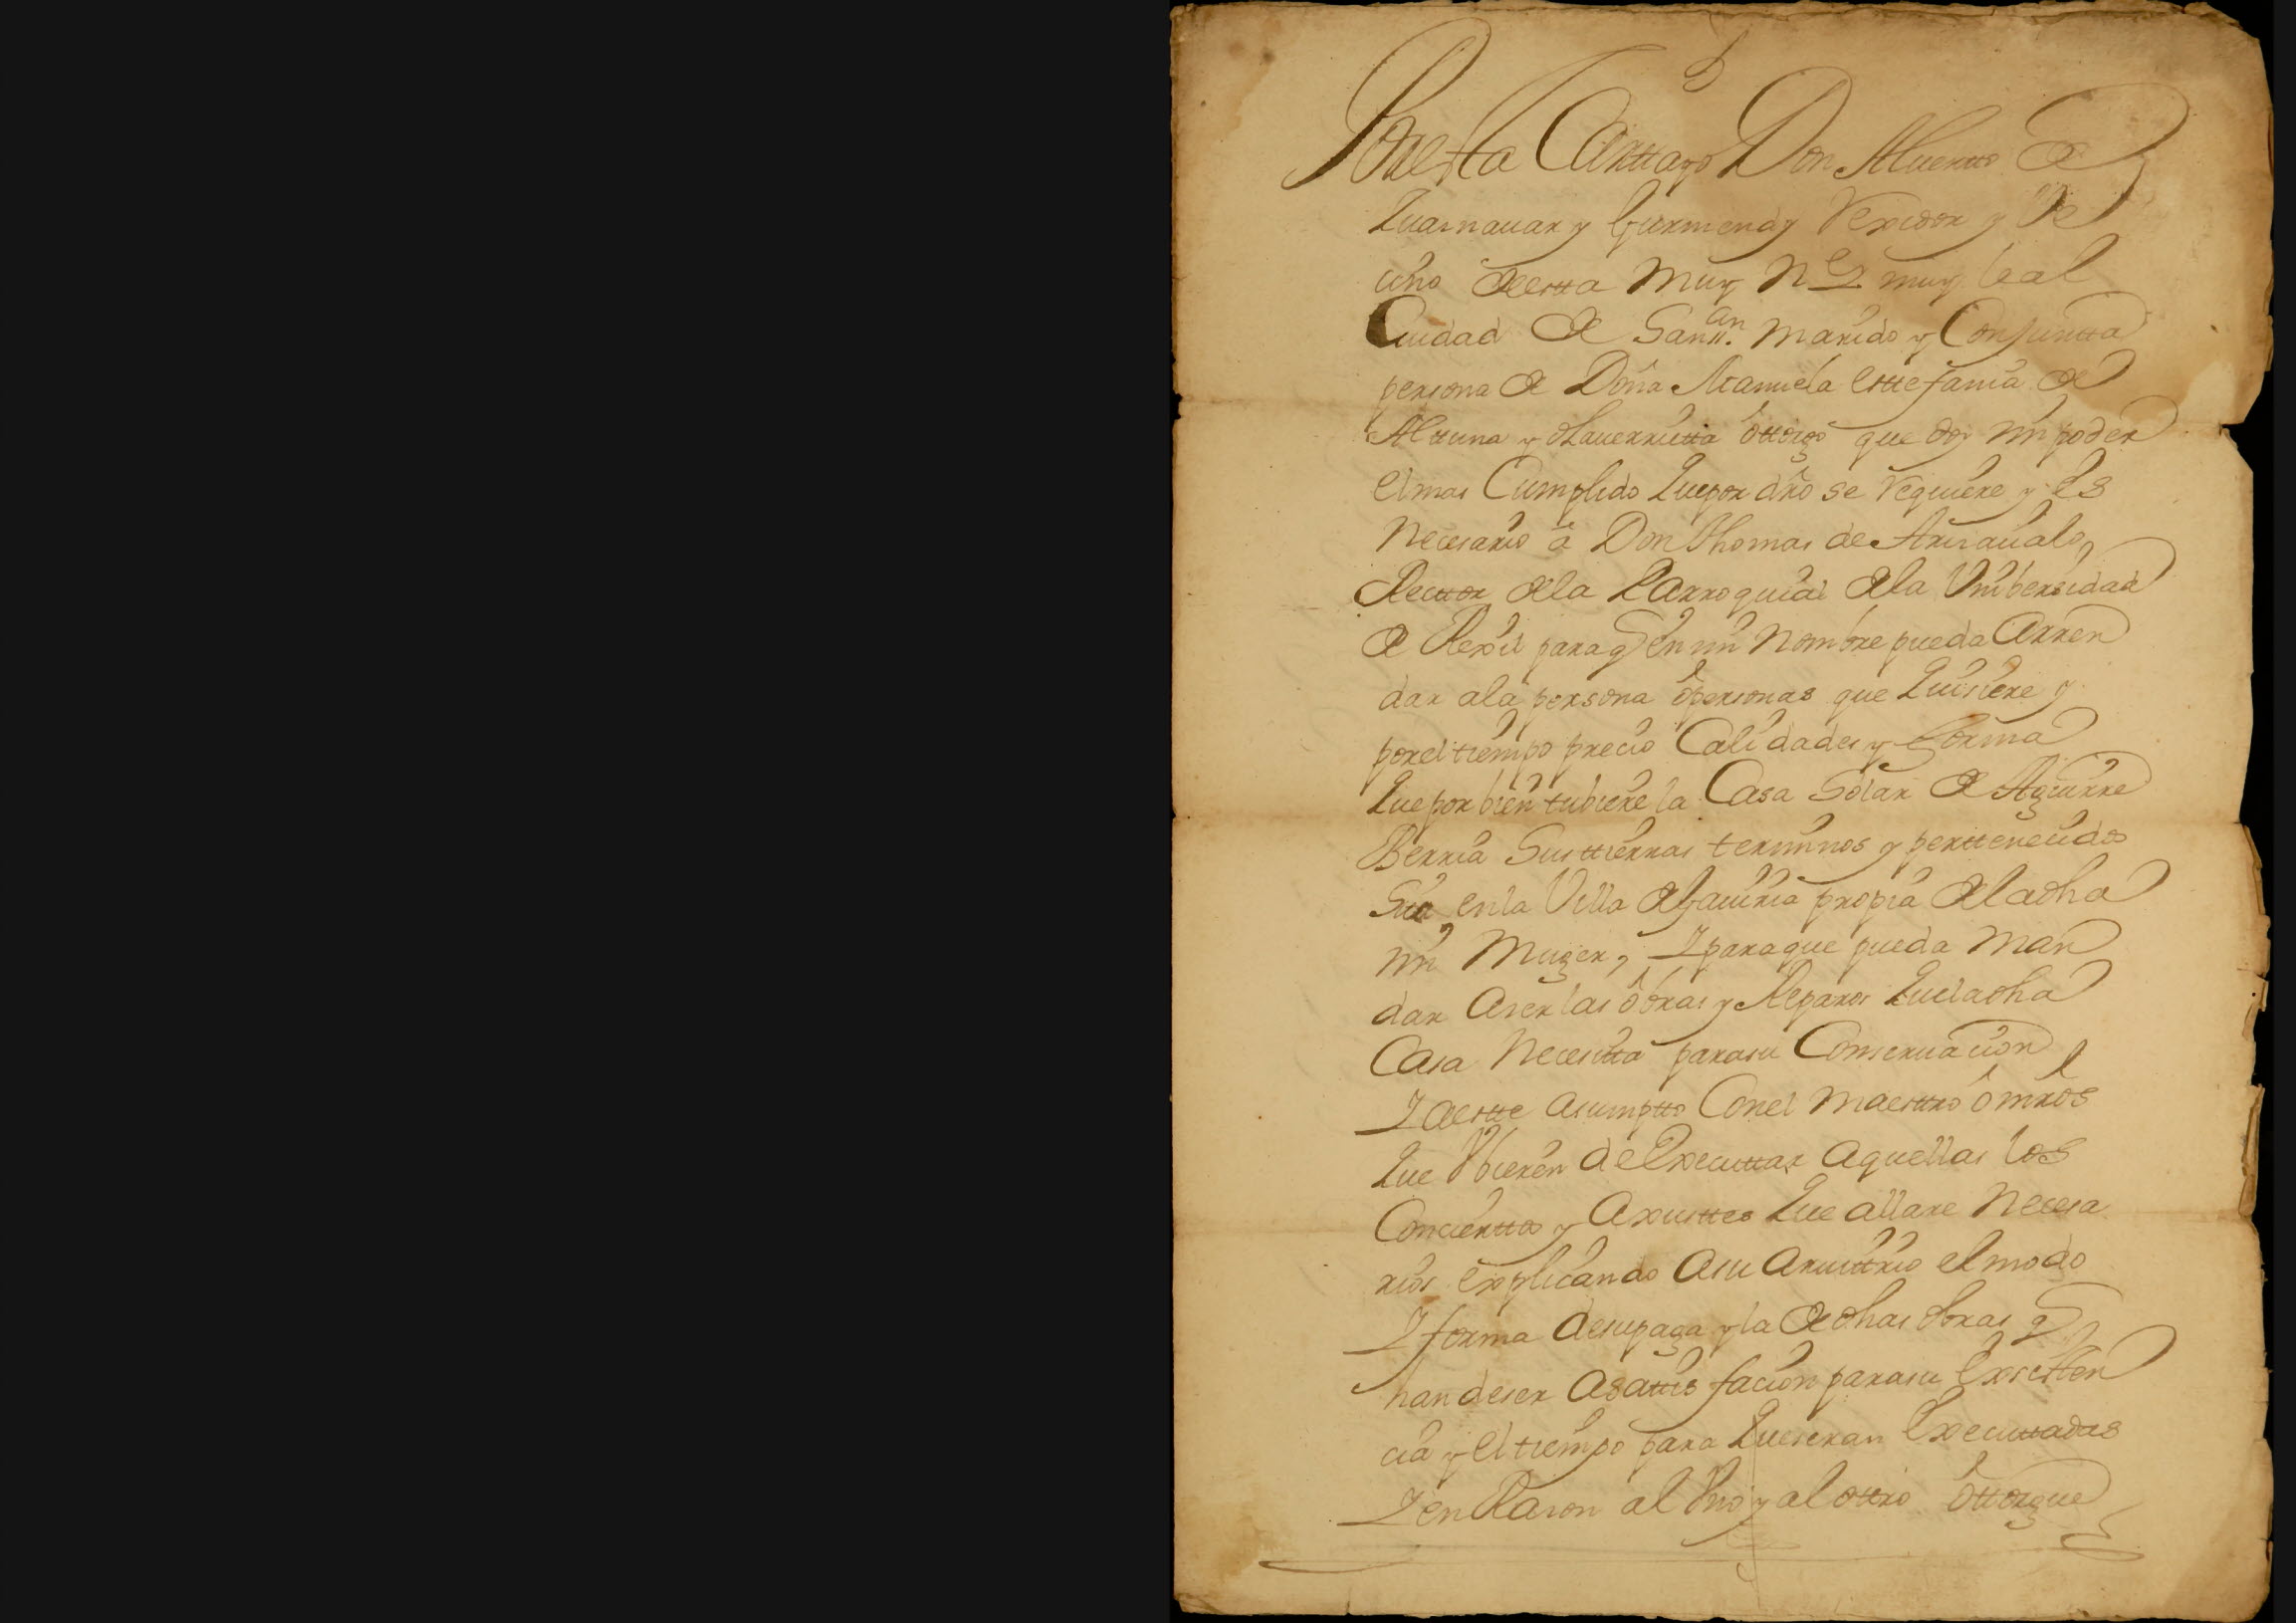 Por esta Carta yo Don Alverto de
Zuasnavar y Gurmendy Rexidor y Ve
cino de esta muy N.e y muy leal
Ciudad de San Sn. marido y Conjuntta
persona de Doña Manuela esttefania de
Alttuna y olaverrietta ôttorgo que doy mi poder
el mas Cumplido que por dro se requiere y es
Necesario â Don Thomas de
Recttor de la Parroquial de la Vnibersidad
de Rexil para q en mi Nombre pueda Arren
dar a la persona ô personas que quisiere y
por el tiempo precio Calidades y forma
que por bien tubiere la Casa Solar de Aguirre
Berria Sus ttierras terminos y perttenecidos
Sita en la Villa de Gaviria propia de la dha
mi Muger, Y para que pueda man
dar Aser las ôbras y Reparos que la dha
Casa Necesitta para su Conservacion
Y de estte asumptto Con el maesttro ô mros
que Vbieren de Executtar aquellas los
Conciertto y Axusttes que allare Necesa
rios explicando a su Arvittrio el modo
Y forma de su paga y la de dhas obras q
han de ser a sattisfacion para su Existten
cia y el tiempo para que seran Executtadas
Y en Rason al Vno y al ottro ôttorgue